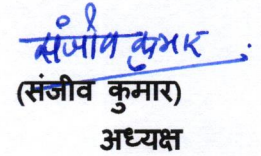 संजीव कुमार
(संजीव कुमार)
अध्यक्ष